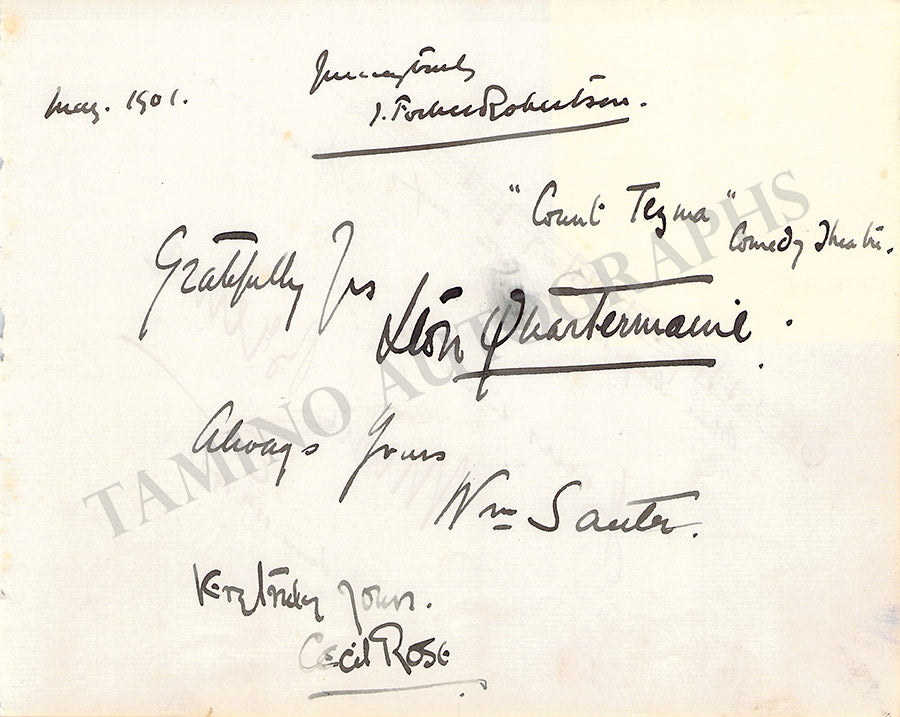 May. 1901.
Yours truly
J. Forbes Robertson.
"Count Tezma"
Comedy Theatre.
Gratefully Yrs
Léon Quartermaine.
Always Yours
Wm Sauter.
Very truly yours.
Cecil Rose
TAMINO AUTOGRAPHS